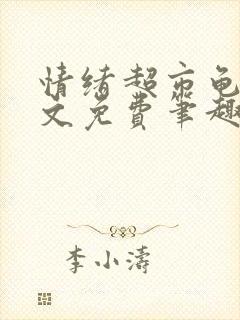 情绪超市龟
文免费笔趣
李小涛